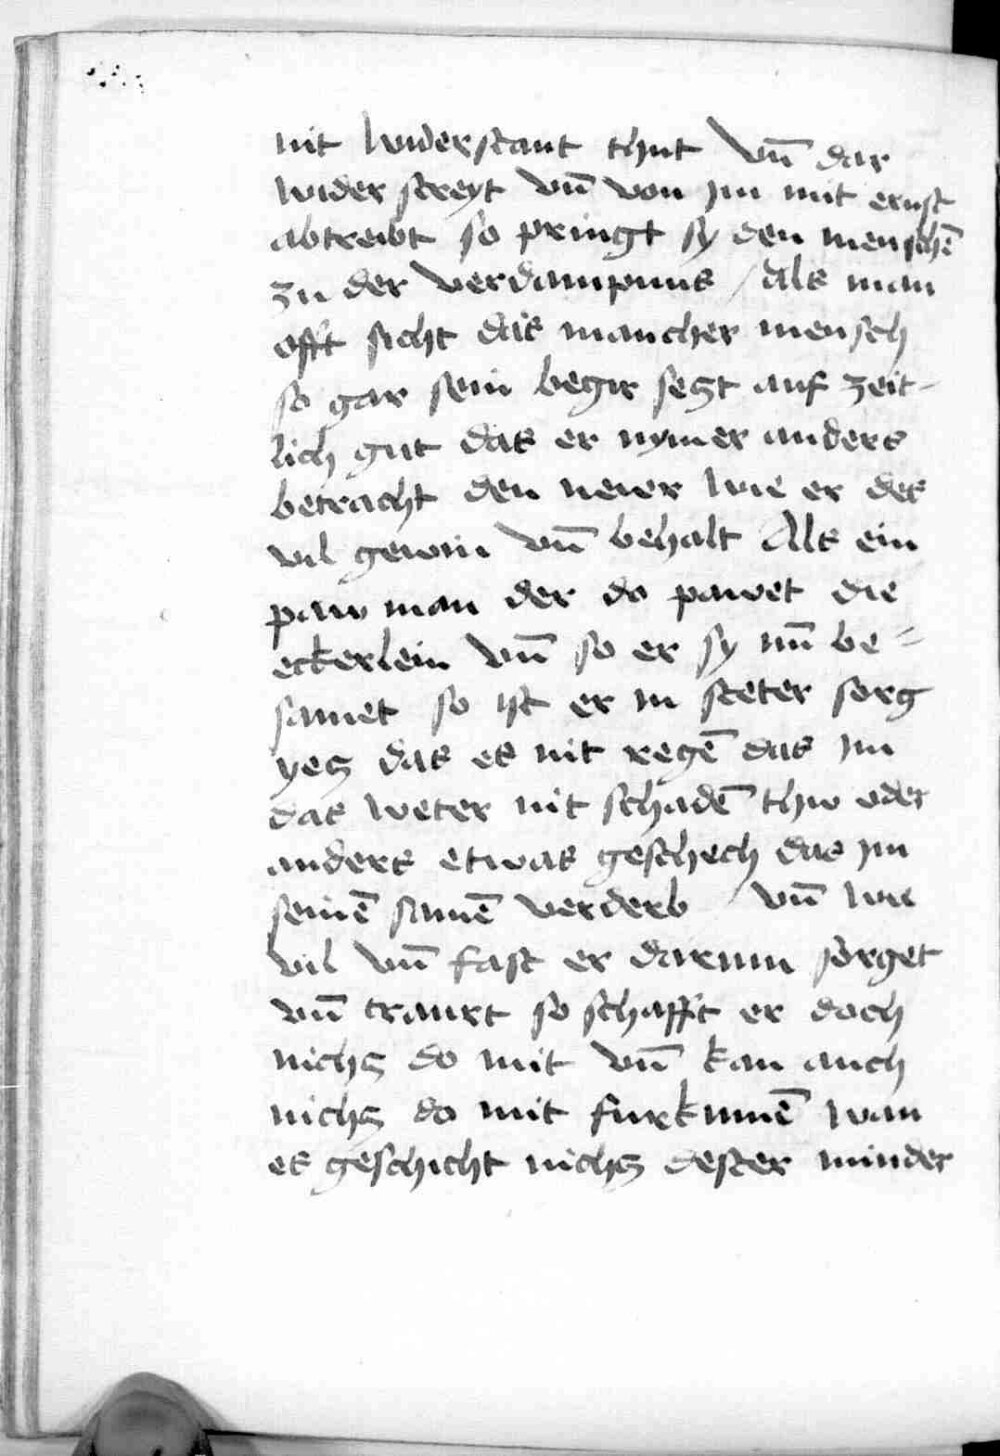 nit widerstant thut vn̄ dar
wider streyt vn̄ von jm mit ernst
abtreibt so pringt sy den mensche͂
zu der verdampnus / Als man
offt sicht das mancher mensch
so gar sein begir setzt auf zeit-
lich gut das er nymer anders
betracht den newr wie er des
vil gewin vn̄ behalt Als ein
paw man der do pawet die
eckerlein vn̄ so er sy nū be=
samet so ist er in steter sorg
yetz das es nit regē das jm
das weter nit schadē thw oder
anders etwas geschech das jm
seinē samē verderb / vn̄ wie
vil vn̄ fast er darum sorget
vn̄ traurt so schafft er doch
nichtz do mit vn̄ kan auch
nichtz do mit furkumē wan
es geschicht nichtz dester minder